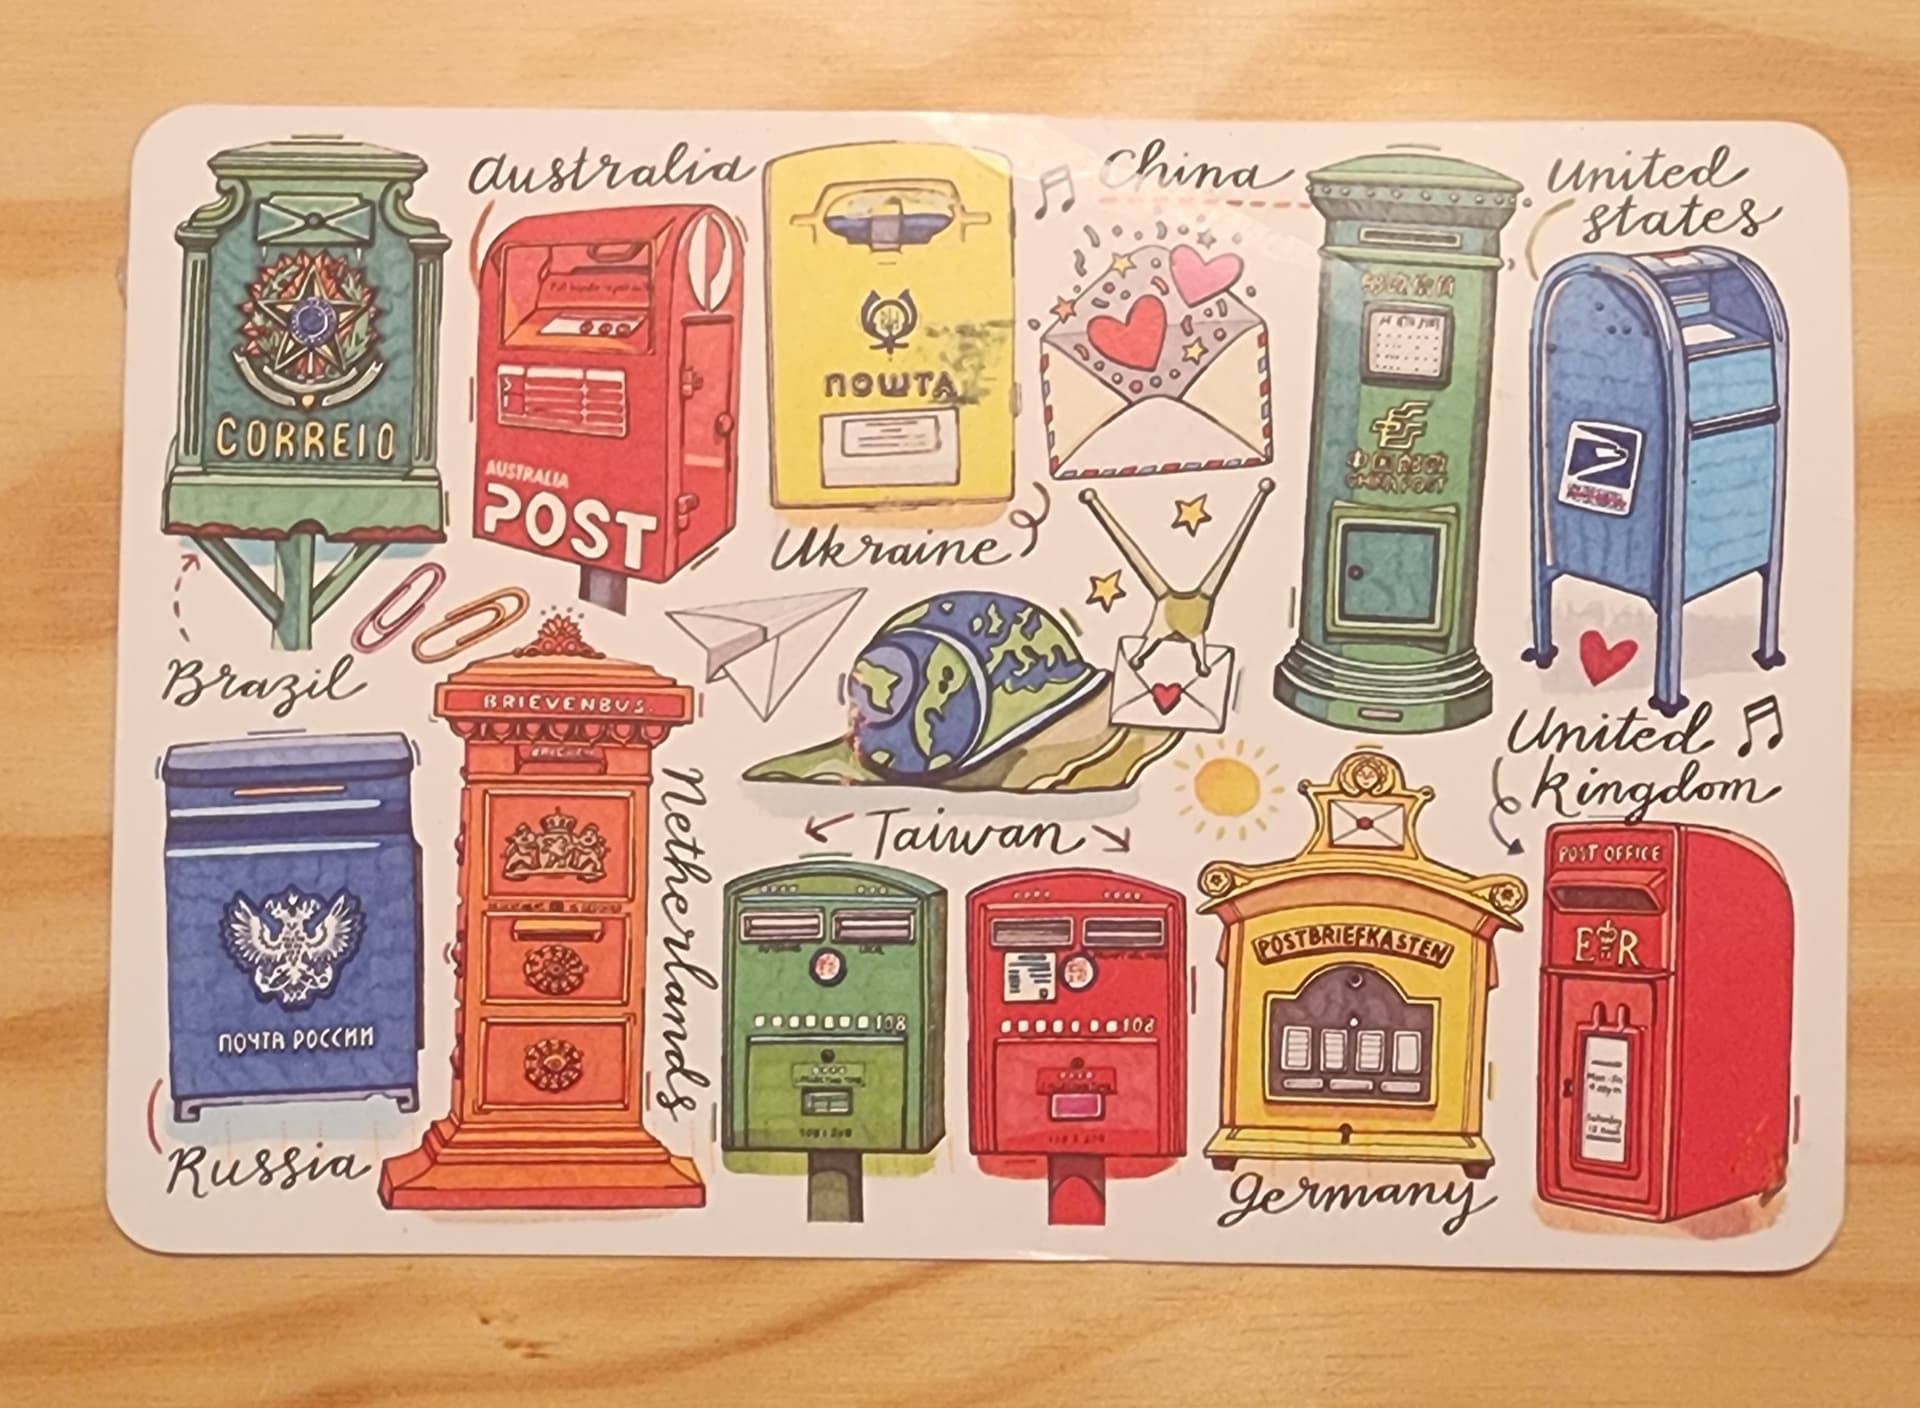 Australia
China
United
States
CORREIO
AUSTRALIA
POST
ПОШТА
Ukraine
CHINA POST
Brazil
BRIEVENBUS.
United
Kingdom
Netherlands
Taiwan
POST OFFICE
E R
POSTBRIEFKASTEN
108
108
ПОЧТА РОССИИ
Russia
Germany